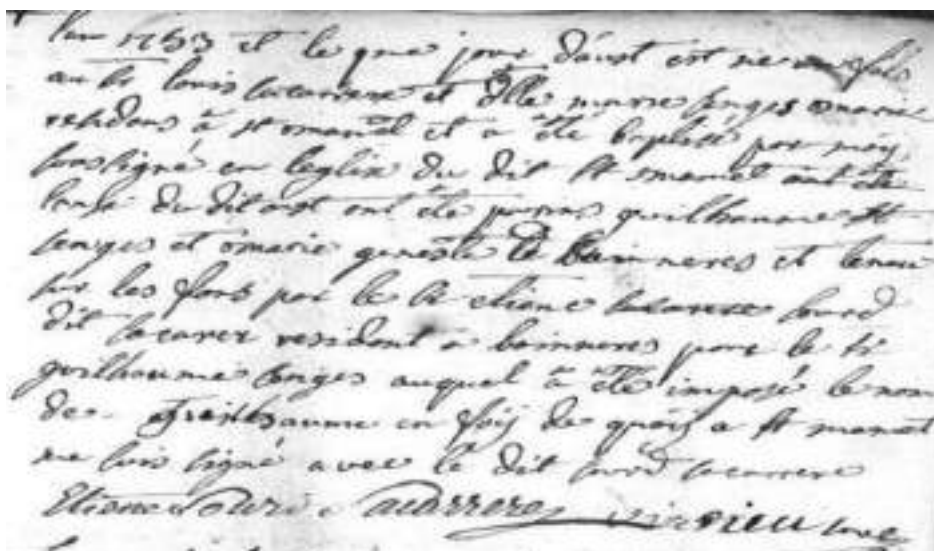 l'an 1753 et le jour d'aust est ne fils
au sr louis lacarrere et dlle marie senges marié
residans à st mamet et a été baptisé par moy
soussigné en leglise du dit st mamet
du dit aust ont été parins guilhaume
senges et marie de bainneres et tenu
sur les fons par le sr etiene lacarrere sourd
dit lacarrer residant a bainneres pour le sr
guilhaume senges auquel à été imposé le nom
de guilhaume en foy de quoy a st mamet
me suis signé avec le dit lacarrere
Etiene lacarrere curé